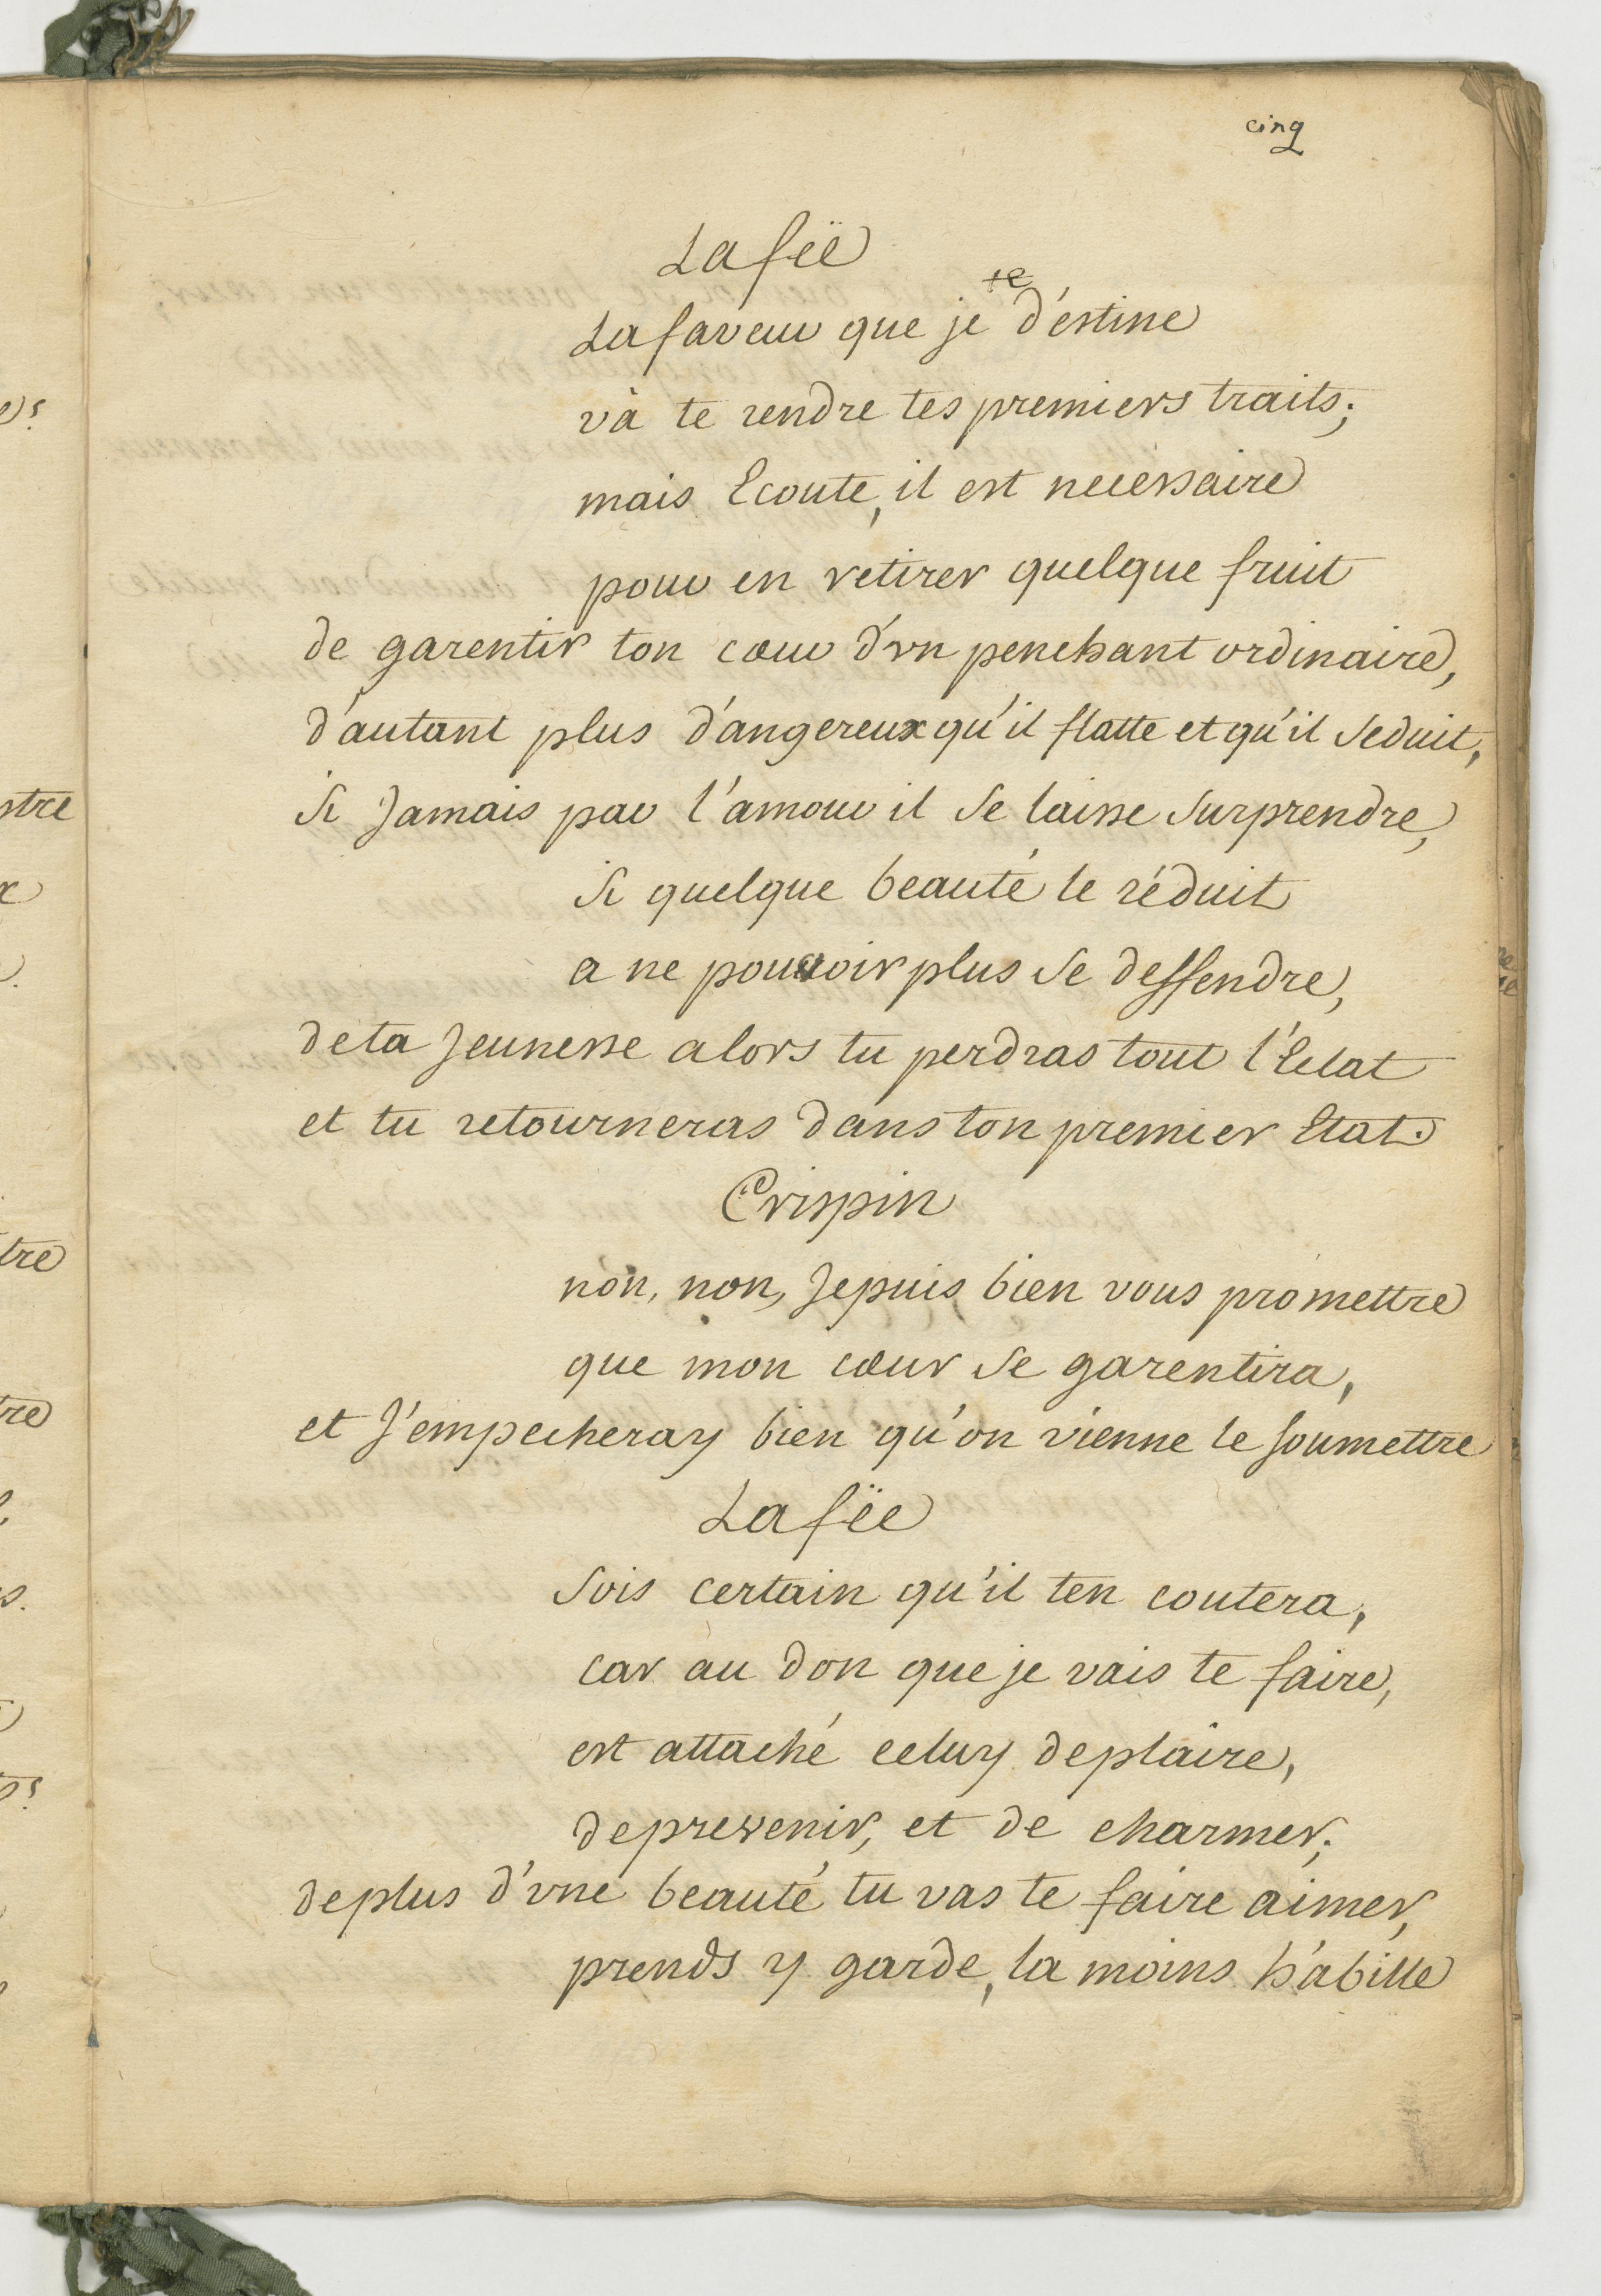 cinq
La fëe
La faveur que je te d'estine
và te rendre tes premiers traits;
mais Ecoute, il est necessaire
pour en retirer quelque fruit
de garentir ton cœur d'vn penchant ordinaire,
d'autant plus d'angereux qu'il flatte et qu'il Seduit,
Si Jamais par l'amour il Se laisse Surprendre,
Si quelque beauté le réduit
a ne pouvoir plus Se deffendre,
de ta Jeunesse alors tu perdras tout l'Eclat
et tu retourneras dans ton premier Etat.
Crispin
non, non, Je puis bien vous promettre
que mon cœur Se garentira,
et J'empecheray bien qu'on vienne le soumettre
La fëe
Sois certain qu'il ten coutera,
car au don que je vais te faire,
est attaché celuy de plaire,
de prevenir, et de charmer;
de plus d'vne beauté tu vas te faire aimer,
prends y garde, la moins h'abille